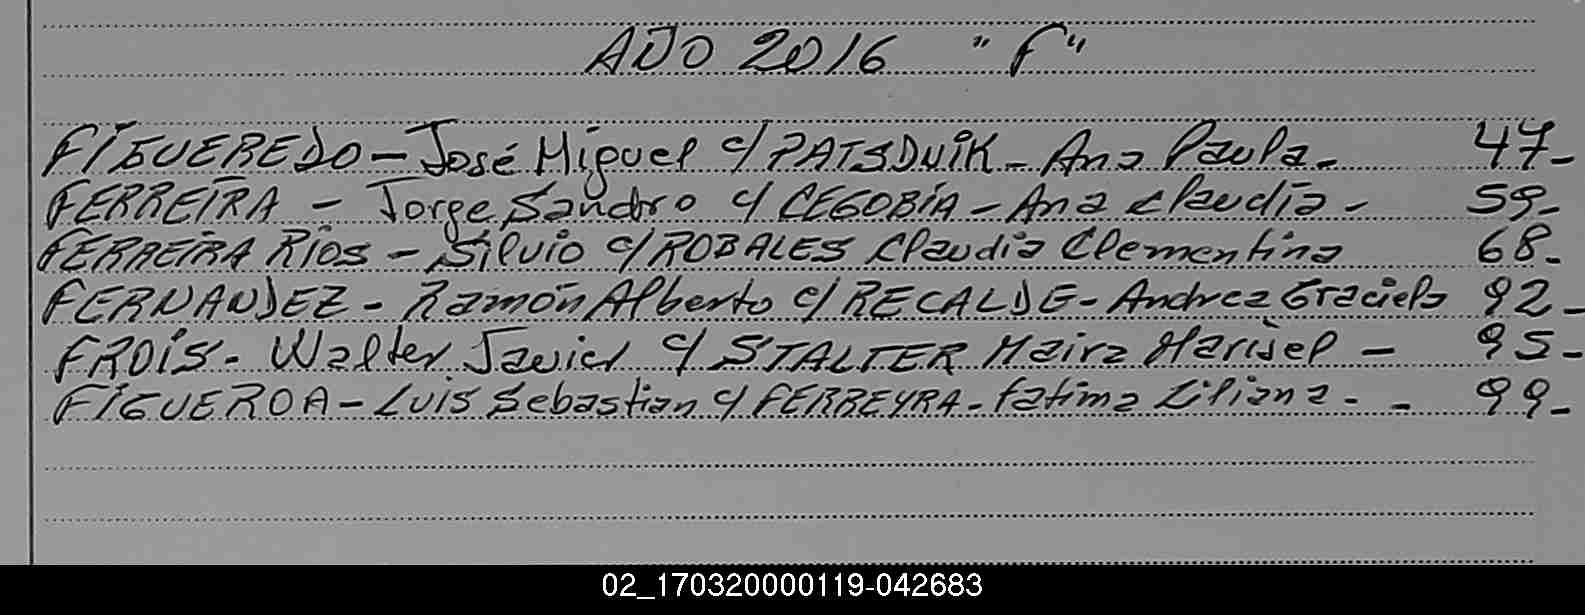 AÑO 2016 "F"
FIGUEREDO - José Miguel c/ PATSDNIK - Ana Paula - 47-
FERREIRA - Jorge Sandro c/ CEGOBIA - Ana Claudia - 59-
FERREIRA RIOS - Silvio c/ ROBALES Claudia Clementina 68-
FERNANDEZ - Ramón Alberto c/ RECALDE - Andrea Graciela 92-
FROIS - Walter Javier c/ STALTER Maira Marisel - 95-
FIGUEROA - Luis Sebastian c/ FERREYRA - Fatima Liliana - - 99-
02_170320000119-042683